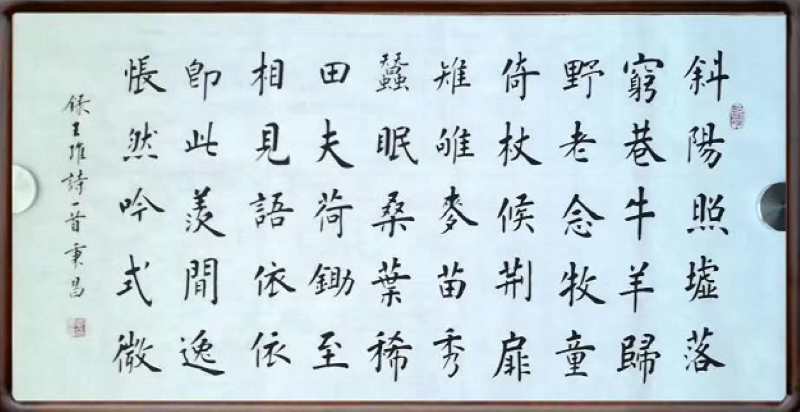 斜陽照墟落
窮巷牛羊歸
野老念牧童
倚杖候荆扉
雉雊麥苗秀
蠶眠桑葉稀
田夫荷鋤至
相見語依依
即此羨閒逸
悵然吟式微
録王維詩一首秉昌